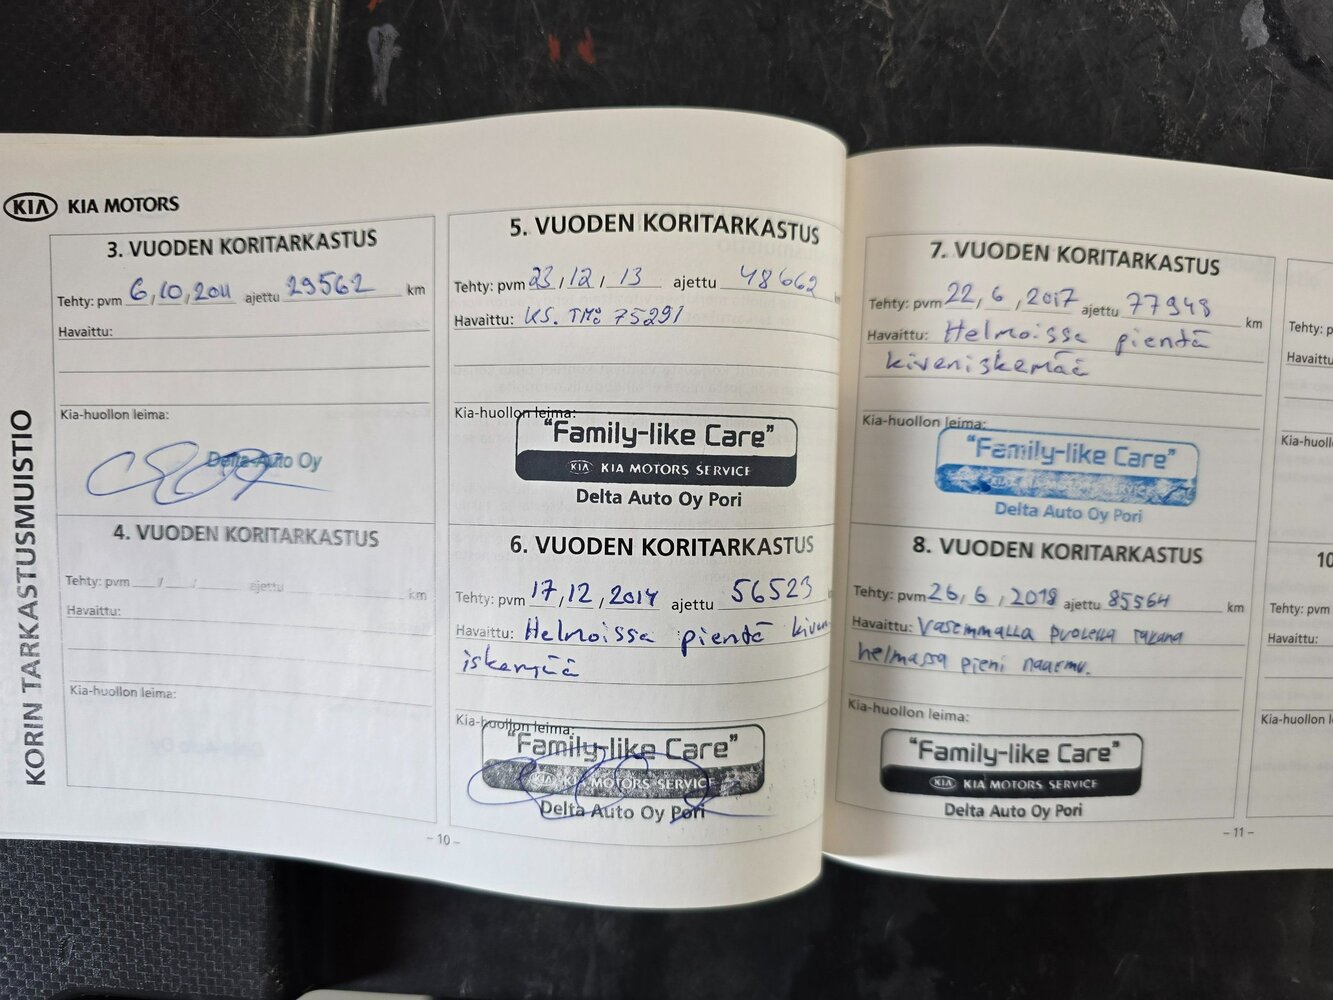 KIA KIA MOTORS
KORIN TARKASTUSMUISTIO
3. VUODEN KORITARKASTUS
Tehty: pvm 6,10,2011 ajettu 29562 km
Havaittu:
Kia-huollon leima:
Delta-Auto Oy
4. VUODEN KORITARKASTUS
Tehty: pvm / / ajettu km
Havaittu:
Kia-huollon leima:
5. VUODEN KORITARKASTUS
Tehty: pvm 23,12,13 ajettu 48662 km
Havaittu: KS. TM: 75291
Kia-huollon leima:
"Family-like Care"
KIA KIA MOTORS SERVICE
Delta Auto Oy Pori
6. VUODEN KORITARKASTUS
Tehty: pvm 17,12,2014 ajettu 56523
Havaittu: Helmoissa pientä kiven-
iskemää
Kia-huollon leima:
"Family-like Care"
KIA KIA MOTORS SERVICE
Delta Auto Oy Pori
– 10 –
7. VUODEN KORITARKASTUS
Tehty: pvm 22,6,2017 ajettu 77948 km
Havaittu: Helmoissa pientä
kiveniskemää
Kia-huollon leima:
"Family-like Care"
KIA KIA MOTORS SERVICE
Delta Auto Oy Pori
8. VUODEN KORITARKASTUS
Tehty: pvm 26,6,2018 ajettu 85564 km
Havaittu: Vasemmalla puolella takana
helmassa pieni naarmu.
Kia-huollon leima:
"Family-like Care"
KIA KIA MOTORS SERVICE
Delta Auto Oy Pori
– 11 –
Tehty: p
Havaittu
Kia-huoll
10
Tehty: pvm
Havaittu:
Kia-huollon l